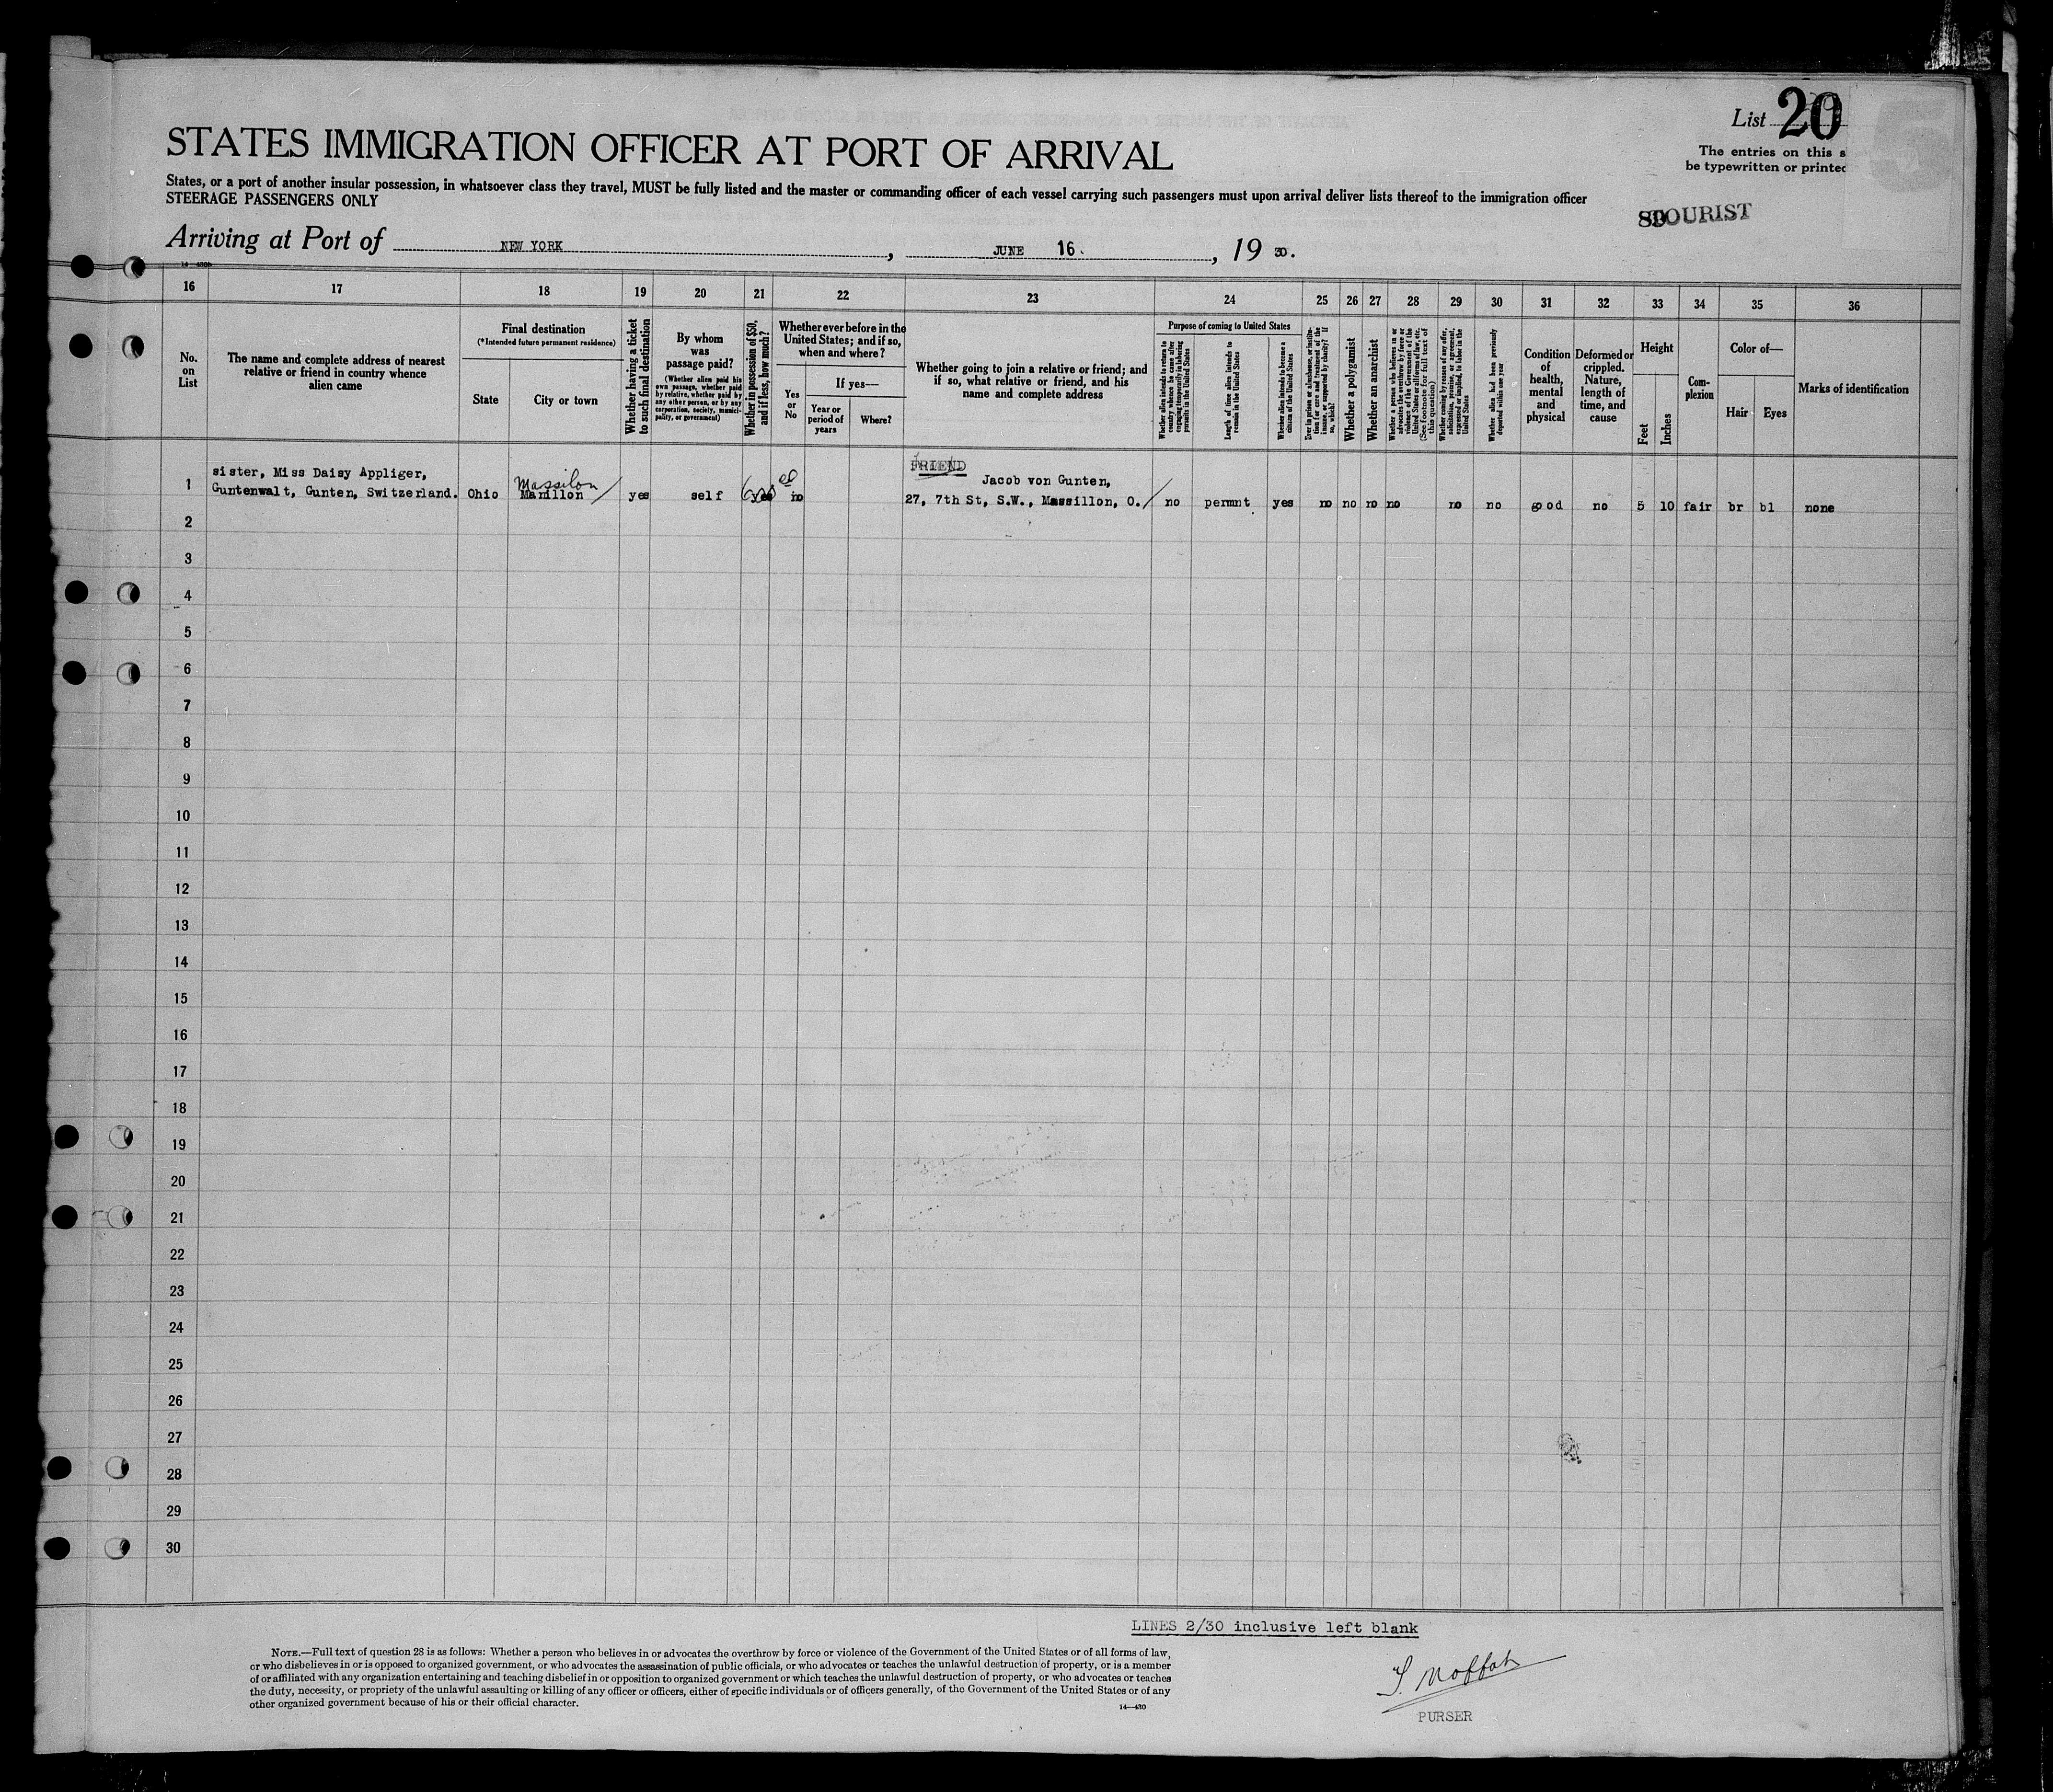 List 20
The entries on this s
be typewritten or printed
STATES IMMIGRATION OFFICER AT PORT OF ARRIVAL
States, or a port of another insular possession, in whatsoever class they travel, MUST be fully listed and the master or commanding officer of each vessel carrying such passengers must upon arrival deliver lists thereof to the immigration officer
STEERAGE PASSENGERS ONLY
OURIST
Arriving at Port of NEW YORK, JUNE 16, 19 30.
16 17 18 19 20 21 22 23 24 25 26 27 28 29 30 31 32 33 34 35 36
No.
on
List
The name and complete address of nearest
relative or friend in country whence
alien came
Final destination
(*Intended future permanent residence)
State
City or town
Whether having a ticket
to such final destination
By whom
was
passage paid?
(Whether alien paid his
own passage, whether paid
by relative, whether paid by
any other person, or by any
corporation, society, munici-
pality, or government)
Whether in possession of $50,
and if less, how much?
Whether ever before in the
United States; and if so,
when and where?
Yes
or
No
If yes—
Year or
period of
years
Where?
Whether going to join a relative or friend; and
if so, what relative or friend, and his
name and complete address
Purpose of coming to United States
Whether alien intends to return to
country whence he came after
engaging temporarily in laboring
pursuits in the United States
Length of time alien intends to
remain in the United States
Whether alien intends to become a
citizen of the United States
Ever in prison or almshouse, or institu-
tion for care and treatment of the
insane, or supported by charity? If
so, which?
Whether a polygamist
Whether an anarchist
Whether a person who believes in or
advocates the overthrow by force or
violence of the Government of the
United States or all forms of law, etc.
(See footnote for full text of
this question)
Whether coming by reason of any offer,
solicitation, promise, or agreement,
expressed or implied, to labor in the
United States
Whether alien had been previously
deported within one year
Condition
of
health,
mental
and
physical
Deformed or
crippled.
Nature,
length of
time, and
cause
Height
Feet
Inches
Com-
plexion
Color of—
Hair
Eyes
Marks of identification
sister, Miss Daisy Appliger,
Massilon
FRIEND
Jacob von Gunten,
1 Guntenwalt, Gunten, Switzerland. Ohio Manillon yes self yes no 27, 7th St, S.W., Massillon, O. no permnt yes no no no no no no good no 5 10 fair br bl none
2
3
4
5
6
7
8
9
10
11
12
13
14
15
16
17
18
19
20
21
22
23
24
25
26
27
28
29
30
LINES 2/30 inclusive left blank
NOTE.—Full text of question 28 is as follows: Whether a person who believes in or advocates the overthrow by force or violence of the Government of the United States or of all forms of law,
or who disbelieves in or is opposed to organized government, or who advocates the assassination of public officials, or who advocates or teaches the unlawful destruction of property, or is a member
of or affiliated with any organization entertaining and teaching disbelief in or opposition to organized government or which teaches the unlawful destruction of property, or who advocates or teaches
the duty, necessity, or propriety of the unlawful assaulting or killing of any officer or officers, either of specific individuals or of officers generally, of the Government of the United States or of any
other organized government because of his or their official character.
14—430
S. Moffat
PURSER